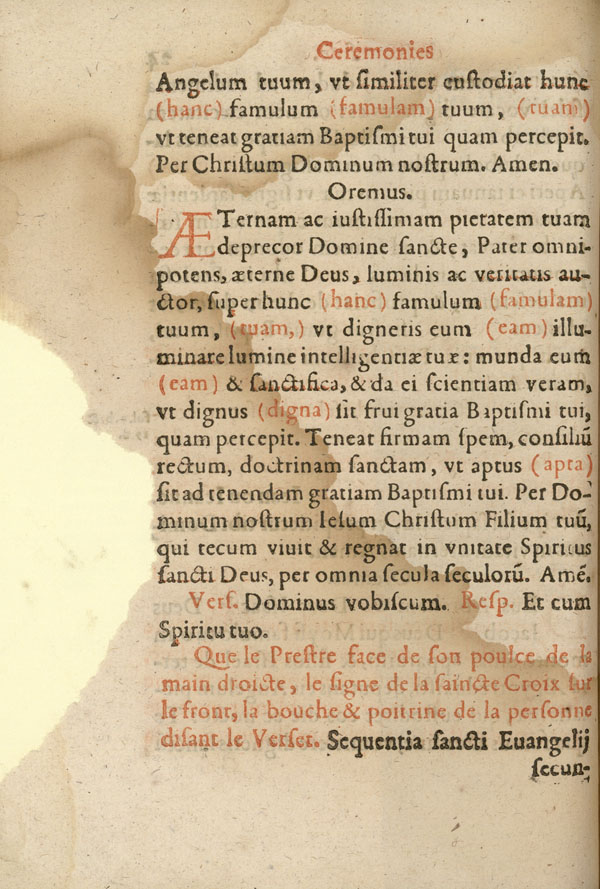 Ceremonies
Angelum tuum, vt ſimiliter cuſtodiat hunc
(hanc) famulum (famulam) tuum, (tuam)
vt teneat gratiam Baptiſmi tui quam percepit.
Per Chriſtum Dominum noſtrum. Amen.
Oremus.
ÆTernam ac iuſtiſſimam pietatem tuam
deprecor Domine ſancte, Pater omni-
potens, æterne Deus, luminis ac veritatis au-
ctor, ſuper hunc (hanc) famulum (famulam)
tuum, (tuam,) vt digneris eum (eam) illu-
minare lumine intelligentiæ tuæ: munda eum
(eam) & ſanctifica, & da ei ſcientiam veram,
vt dignus (digna) ſit frui gratia Baptiſmi tui,
quam percepit. Teneat firmam ſpem, conſiliũ
rectum, doctrinam ſanctam, vt aptus (apta)
ſit ad tenendam gratiam Baptiſmi tui. Per Do-
minum noſtrum Ieſum Chriſtum Filium tuũ,
qui tecum viuit & regnat in vnitate Spiritus
ſancti Deus, per omnia ſecula ſeculorũ. Amẽ.
Verſ. Dominus vobiſcum. Reſp. Et cum
Spiritu tuo.
Que le Preſtre face de ſon poulce de la
main droicte, le ſigne de la ſaincte Croix ſur
le front, la bouche & poitrine de la perſonne
diſant le Verſet. Sequentia ſancti Euangelij
ſecun-